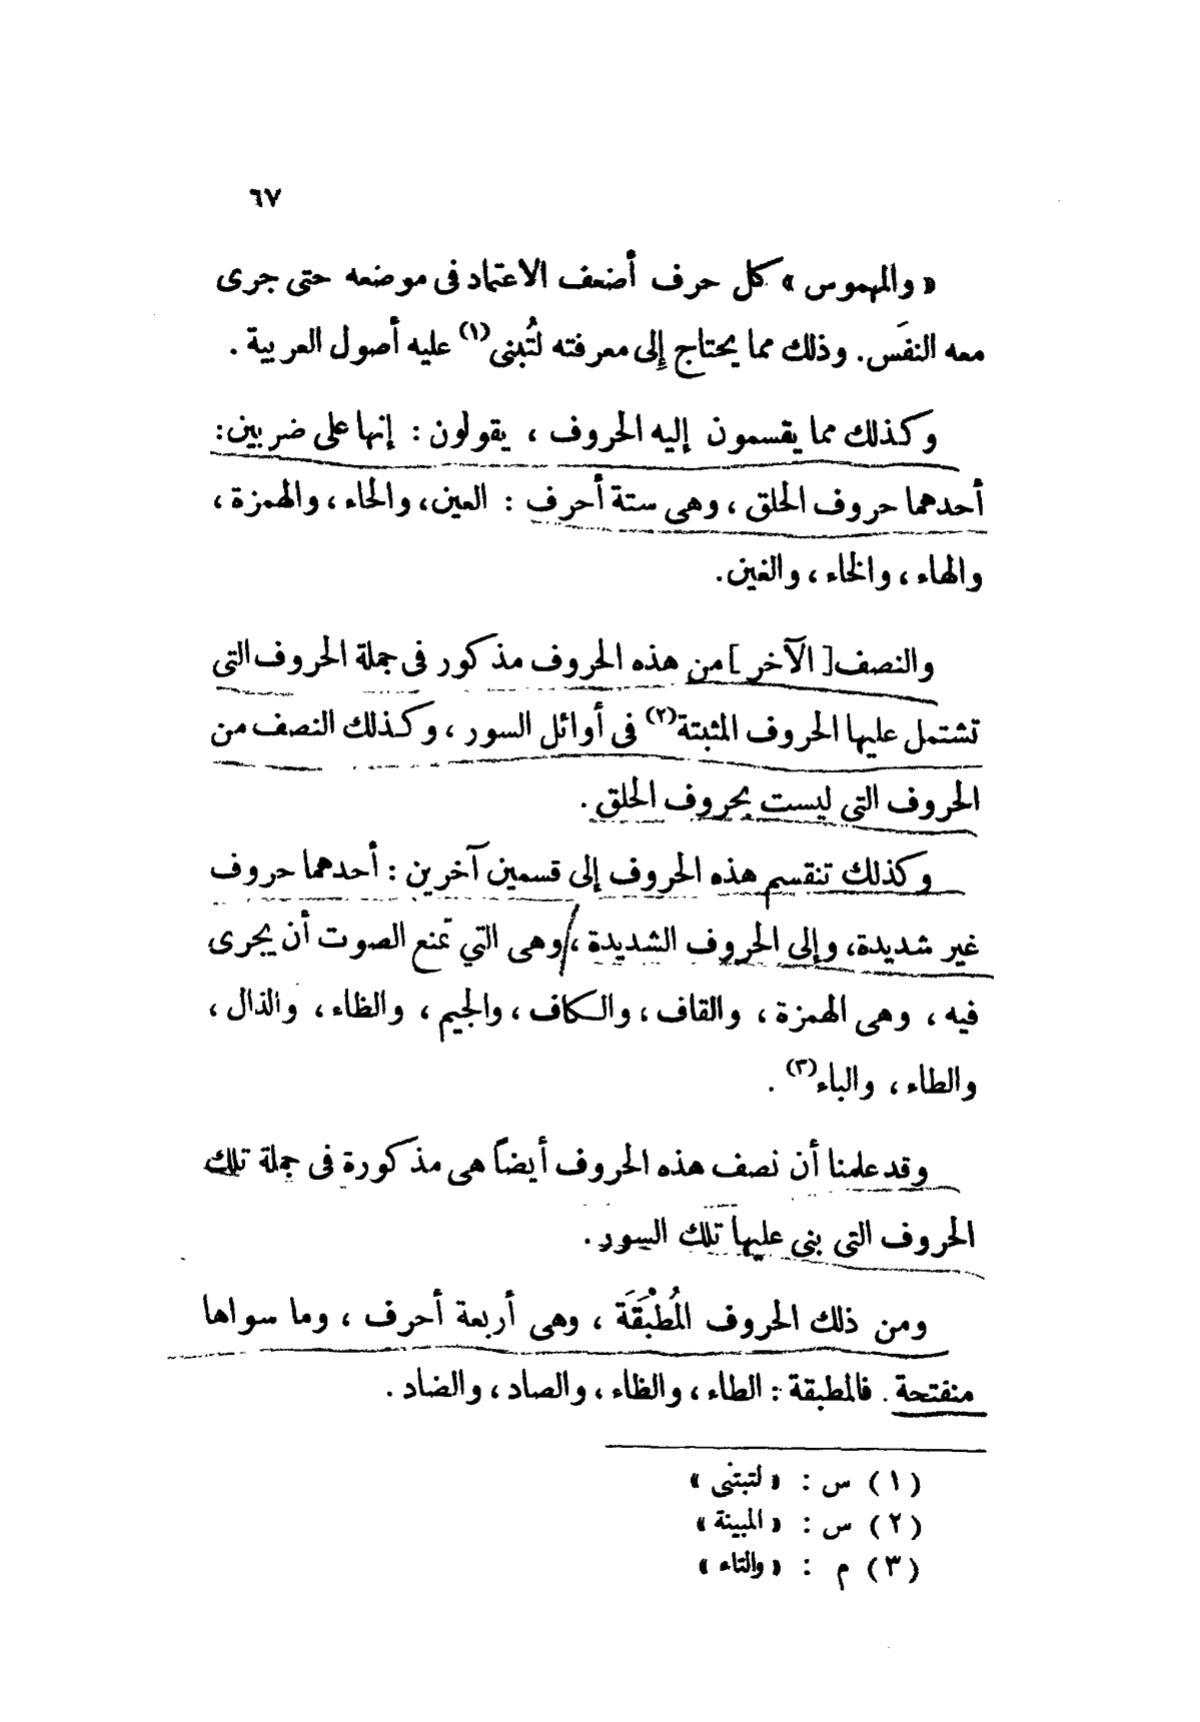 ٦٧
« والمهموس » كل حرف أضعف الاعتماد فى موضعه حتى جرى
معه النفَس. وذلك مما يحتاج إلى معرفته لتُبنى(١) عليه أصول العربية .
وكذلك مما يقسمون إليه الحروف ، يقولون : إنها على ضربين :
أحدهما حروف الحلق ، وهى ستة أحرف : العين، والحاء ، والهمزة ،
والهاء ، والخاء ، والغين.
والنصف [ الآخر ] من هذه الحروف مذكور فى جملة الحروف التى
تشتمل عليها الحروف المثبتة(٢) فى أوائل السور ، وكذلك النصف من
الحروف التى ليست بحروف الحلق .
وكذلك تنقسم هذه الحروف إلى قسمين آخرين : أحدهما حروف
غير شديدة، وإلى الحروف الشديدة ، وهى التي تمنع الصوت أن يجرى
فيه ، وهى الهمزة ، والقاف ، والكاف ، والجيم ، والظاء ، والذال ،
والطاء ، والباء(٣) .
وقد علمنا أن نصف هذه الحروف أيضاً هى مذكورة فى جملة تلك
الحروف التى بنى عليها تلك السور .
ومن ذلك الحروف المُطْبَقَة ، وهى أربعة أحرف ، وما سواها
منفتحة . فالمطبقة : الطاء ، والظاء ، والصاد ، والضاد .
(١) س : « لتبتنى »
(٢) س : « المبينة »
(٣) م : « والتاء »